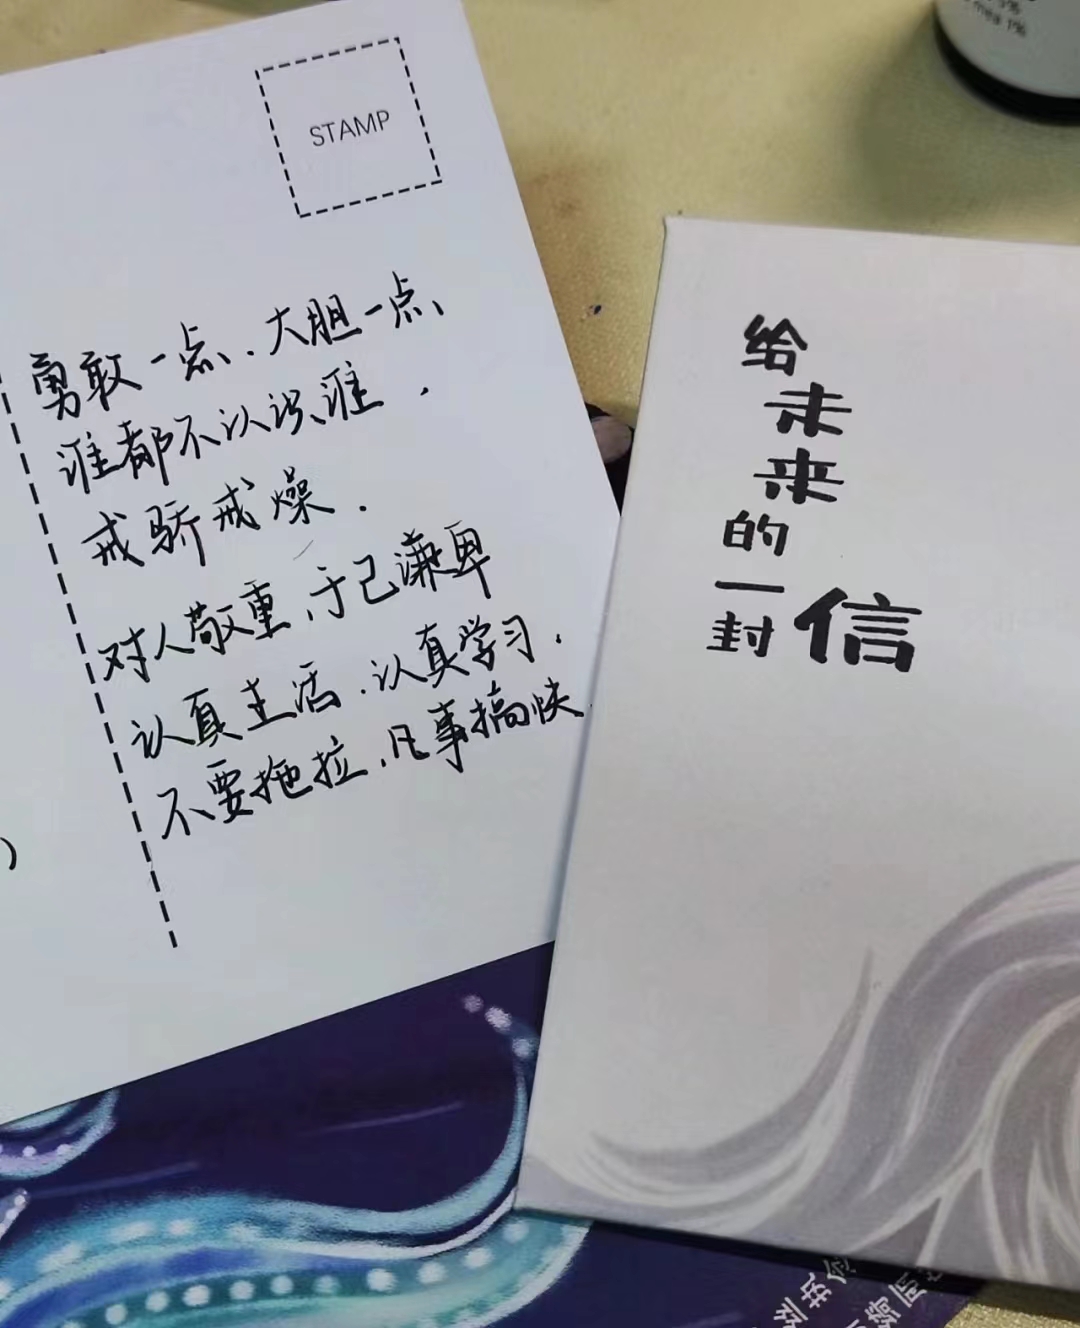 STAMP
勇敢一点、大胆一点、
谁都不认识谁.
戒骄戒燥.
对人敬重,于己谦卑
认真生活.认真学习.
不要拖拉,凡事搞快
给
未
来
的
一
封信